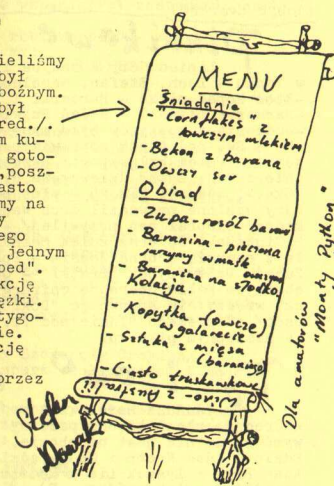 ieliśmy
był
bożnym.
był
red./.
m ku-
goto-
,posz-
asto
my na
y
ego
jednym
ped".
kcję
ężki.
tygo-
ie.
cję
przez
MENU
Śniadanie
- "Corn flakes" z
owczym mlekiem
- Bekon z barana
- Owczy ser
Obiad
- Zupa - rosół barani
- Baranina - pieczona
jarzyny w maśle
owczym
- Baranina na słodko.
Kolacja.
- Kopytka - (owcze)
w galarecie
- Sztuka z mięsa
(baraniego)
- Ciasto truskawkowe
Wino - z Austrii!!
Dla amatorów
"Monty Python"
Stefan